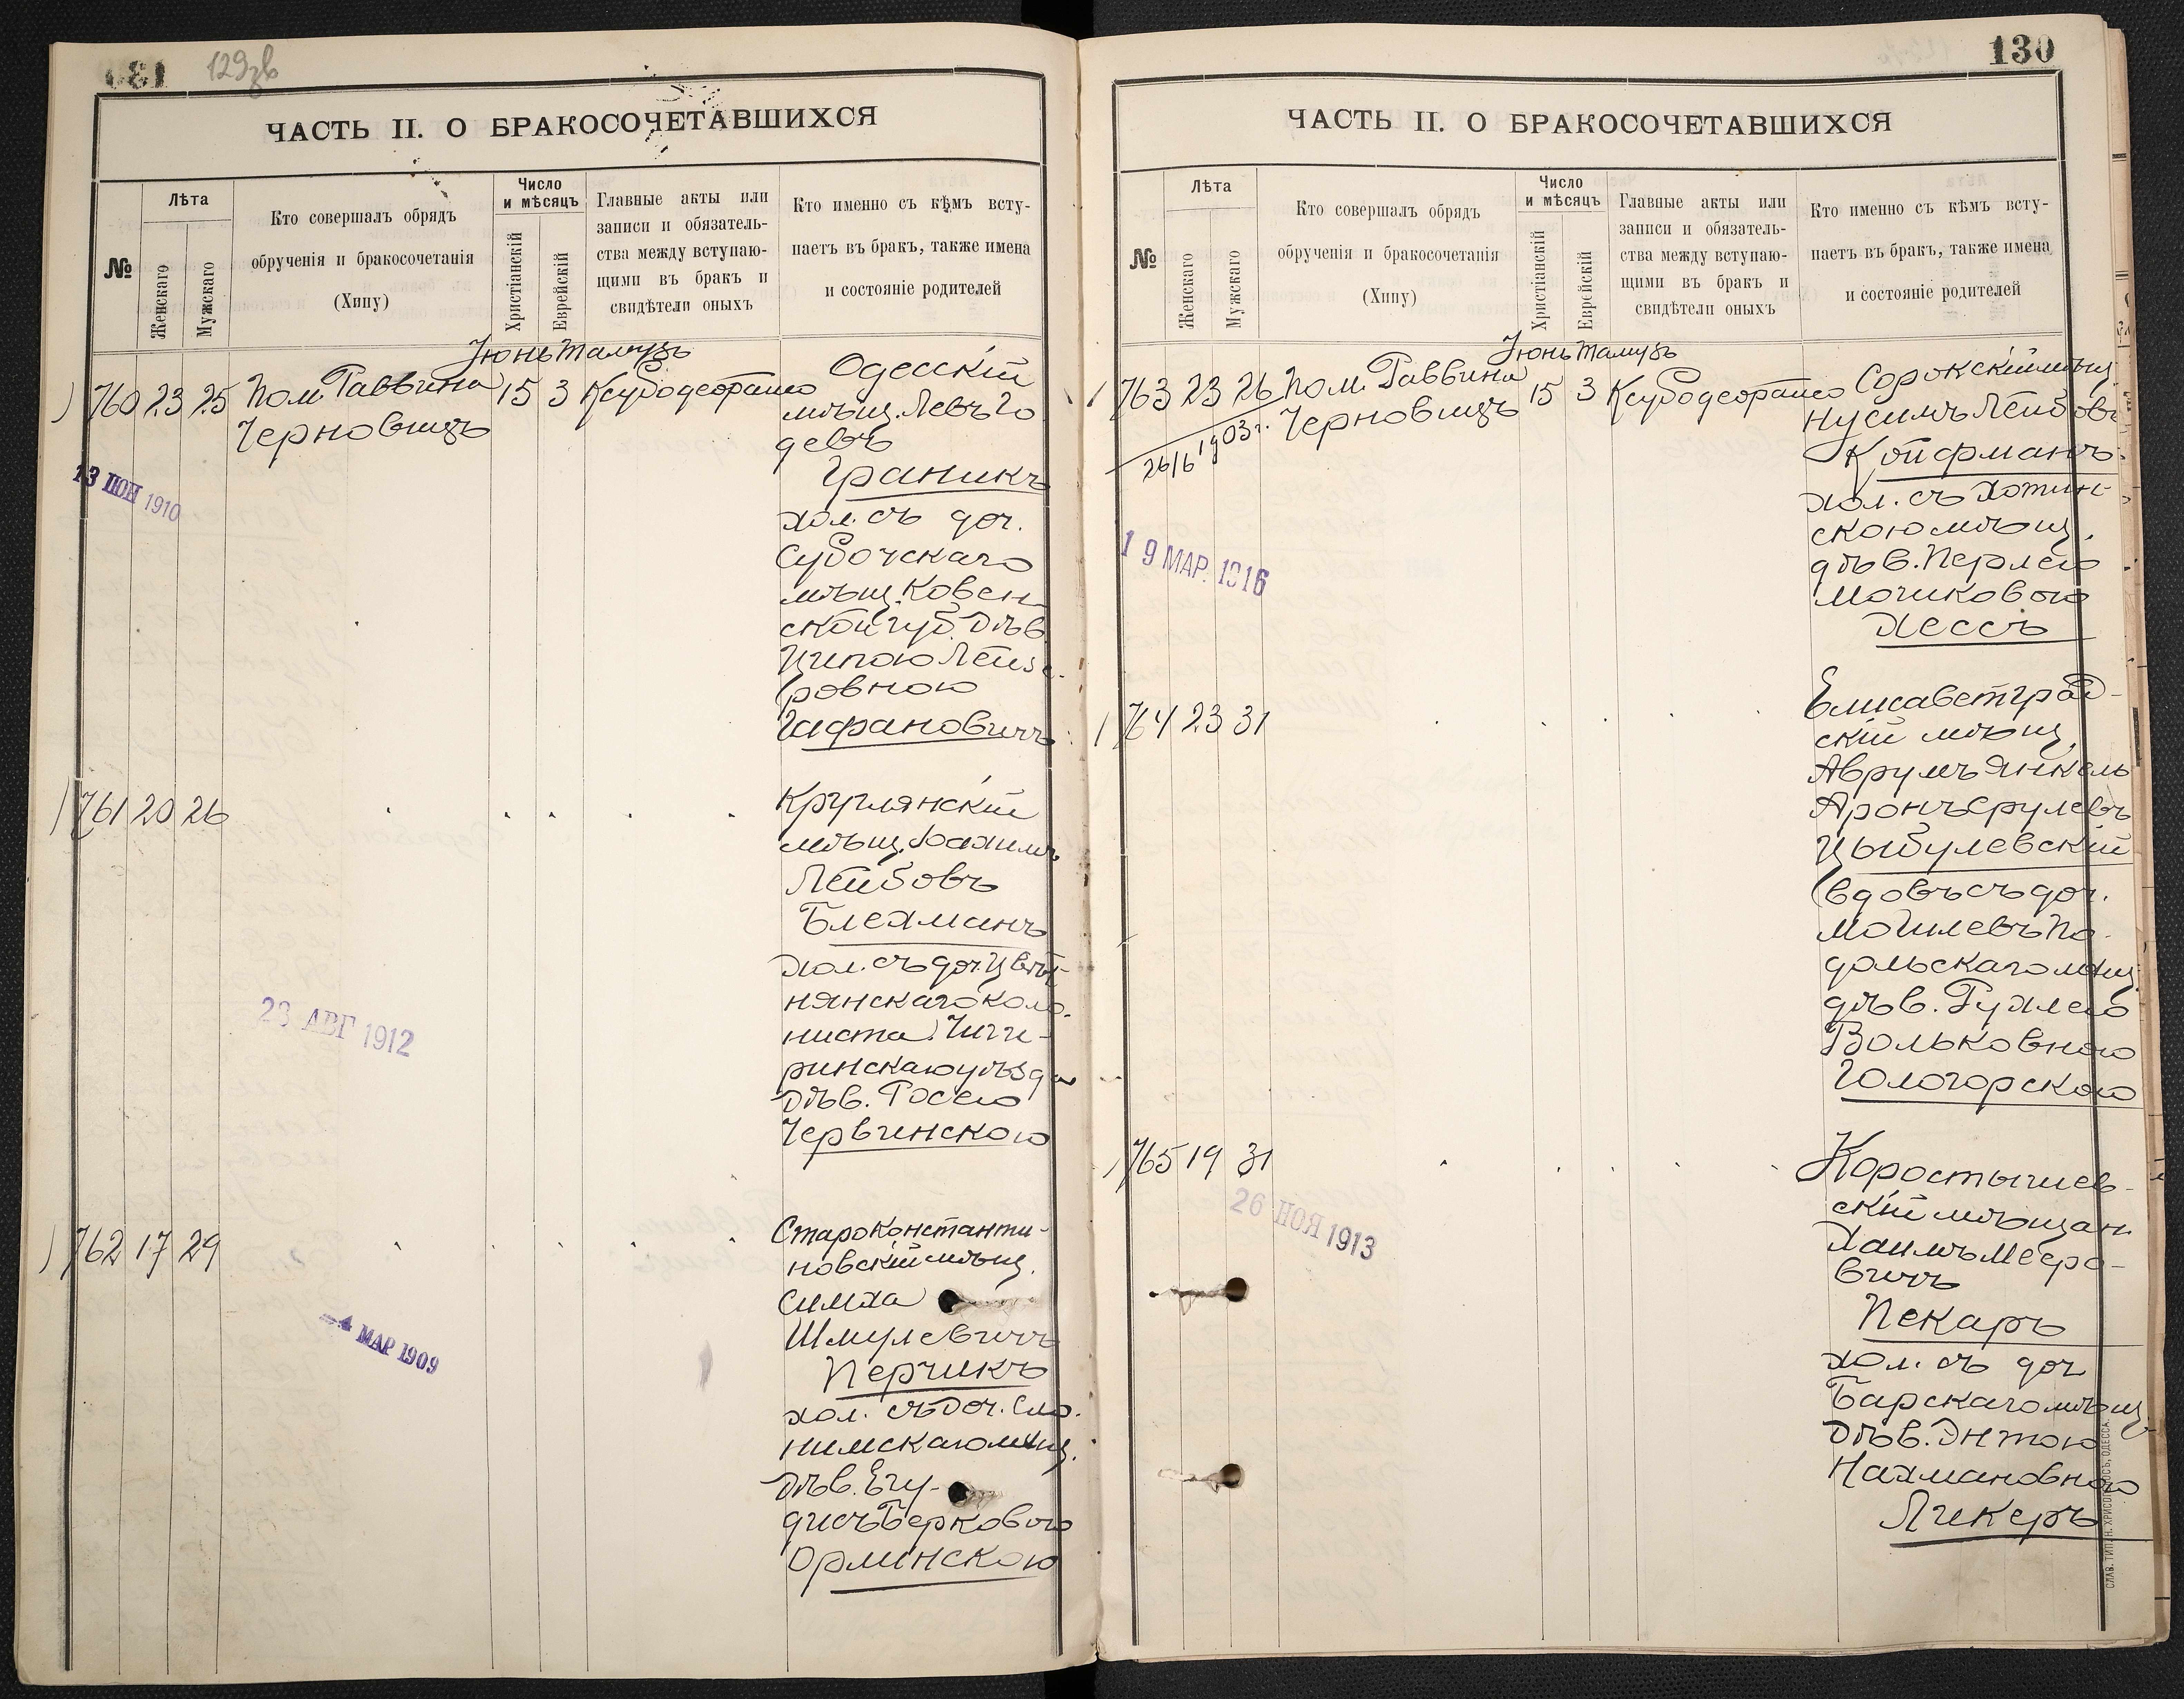 129зв
ЧАСТЬ II. О БРАКОСОЧЕТАВШИХСЯ
№
Лѣта
Женскаго
Мужскаго
Кто совершалъ обрядъ
обрученія и бракосочетанія
(Хипу)
Число
и мѣсяцъ
Христіанскій
Еврейскій
Главные акты или
записи и обязатель-
ства между вступаю-
щими въ бракъ и
свидѣтели оныхъ
Кто именно съ кѣмъ всту-
паетъ въ бракъ, также имена
и состояніе родителей
Іюнь Тамузъ
760 23 25 Пом. Раввина 15 3
Черновицъ
Одесскій
мѣщ. Левъ Го
девъ
Граникъ
хол. съ доч.
Субочскаго
мѣщ. Ковен
ской губ. дѣв.
Ципою Лейзе-
ровною
Гафановичъ
13 ІЮН 1910
761 20 26
Круглянскій
мѣщ. Іоахимъ
Лейбовъ
Блехманъ
хол. съ доч. Цвѣт-
нянскаго коло-
ниста Чиги-
ринскаго уѣзда
дѣв. Росею
Червинскою
23 АВГ 1912
762 17 29
Староконстанти-
новскій мѣщ.
Симха
Шмулевичъ
Перчикъ
хол. съ доч. Сло-
нимскаго мѣщ.
дѣв. Егу-
дисъ Берковою
Орлинскою
4 МАР 1909
130
ЧАСТЬ II. О БРАКОСОЧЕТАВШИХСЯ
№
Лѣта
Женскаго
Мужскаго
Кто совершалъ обрядъ
обрученія и бракосочетанія
(Хипу)
Число
и мѣсяцъ
Христіанскій
Еврейскій
Главные акты или
записи и обязатель-
ства между вступаю-
щими въ бракъ и
свидѣтели оныхъ
Кто именно съ кѣмъ всту-
паетъ въ бракъ, также имена
и состояніе родителей
Іюнь Тамузъ
763 23 26 Пом. Раввина 15 3
Черновицъ
26/6 1903 г.
Сорокскій мѣщ.
Нусимъ Лейбовъ
Койфманъ
хол. съ Хотин-
скою мѣщ.
дѣв. Перлею
Мошковою
Хессъ
19 МАР. 1916
764 23 31
Елисаветград-
скій мѣщ.
Аврумъ Янкель
Аронъ Срулевъ
Цыбулевскій
вдовъ съ доч.
Могилевъ По-
дольскаго мѣщ.
дѣв. Рухлею
Вольковною
Гологорскою
765 19 31
Коростышев-
скій мѣщан.
Хаимъ Мееро-
вичъ
Пекаръ
хол. съ доч
Барскаго мѣщ.
дѣв. Энтою
Нахмановною
Ликеръ
26 НОЯ 1913
СЛАВ. ТИП. Н. ХРИСОГЕЛОСЪ, ОДЕССА.